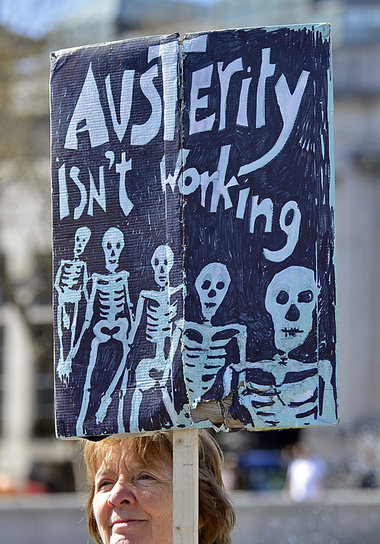 AUSTErity
isn't working